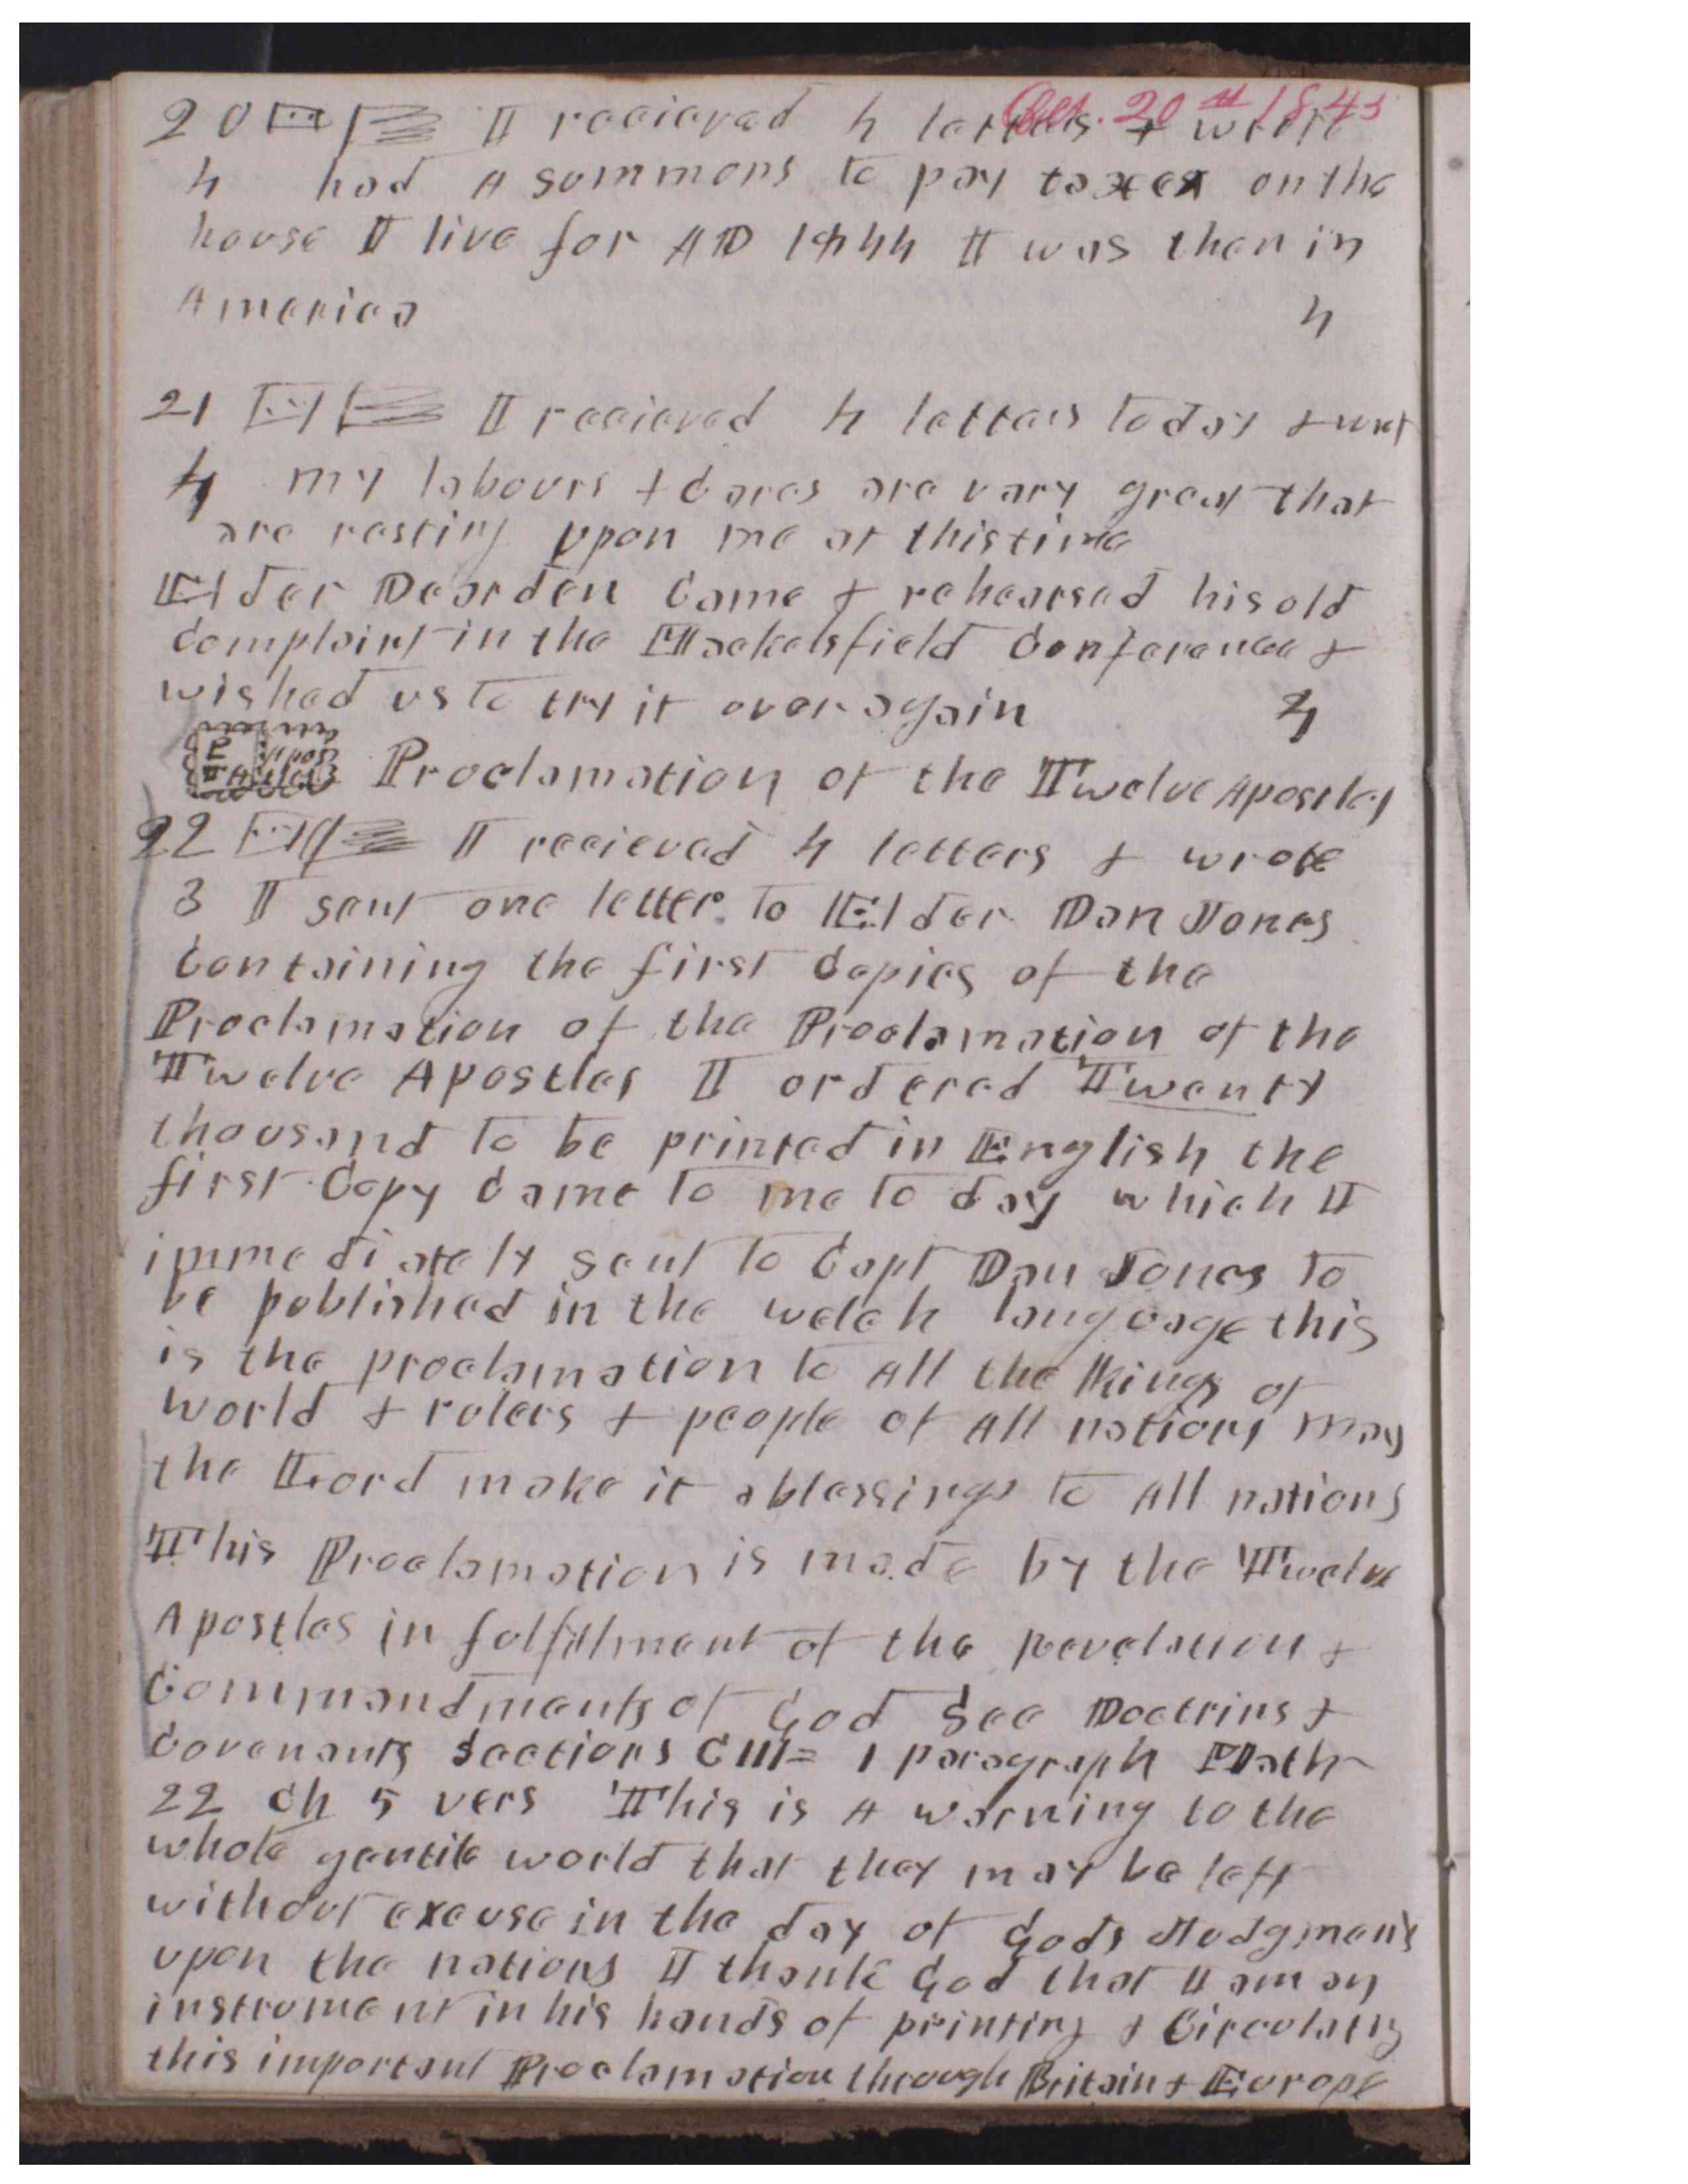 Oct. 20th 1845
20 I recieved 4 letters & wrote
4 had A summons to pay taxes on the
house I live for AD 1844 I was then in
America 4
21 I recieved 4 letters to day & wrt
4 my labours & Cares are vary great that
are resting upon me at this time
Elder Dearden Came & rehearsed his old
Complaint in the Mackelsfield Conference &
wished us to try it over again 4
Proclamation of the Twelve Apostles
22 I recieved 4 letters & wrote
3 I sent one letter to Elder Dan Jones
Containing the first Copies of the
Proclamation of the Proclamation of the
Twelve Apostles I ordered Twenty
thousand to be printed in English the
first Copy Came to me to day which I
immediately sent to Capt Dan Jones to
be published in the welch language this
is the proclamation to All the Kings of
world & rulers & people of All nations may
the Lord make it a blessings to All nations
This Proclamation is made by the Twelve
Apostles in fulfillment of the Revelation &
Commandments of God See Doctrins &
Covenants Sections CIII= 1 paragraph Math
22 ch 5 vers This is A warning to the
whole gentile world that they may be left
without excuse in the day of Gods Judgments
upon the nations I thank God that I am an
instrument in his hands of printing & Circulating
this important Proclamation through Britain & Europe